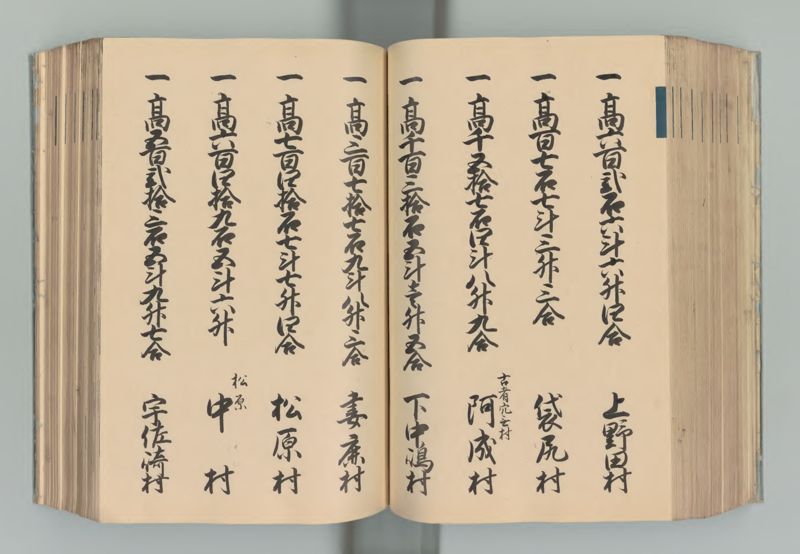 一髙六百弐石六斗六升四合 上野田村
一髙百七石七斗三升三合 袋尻村
一髙千五拾七石四斗八升九合
古者 村
阿成村
一髙千百三拾石五斗壱升五合 下中嶋村
一髙三百七拾七石九斗八升三合 妻鹿村
一髙七百四拾石七斗七升四合 松原村
一髙六百四拾九石五斗六升
松原
中村
一髙五百弐拾三石五斗九升七合 宇佐崎村